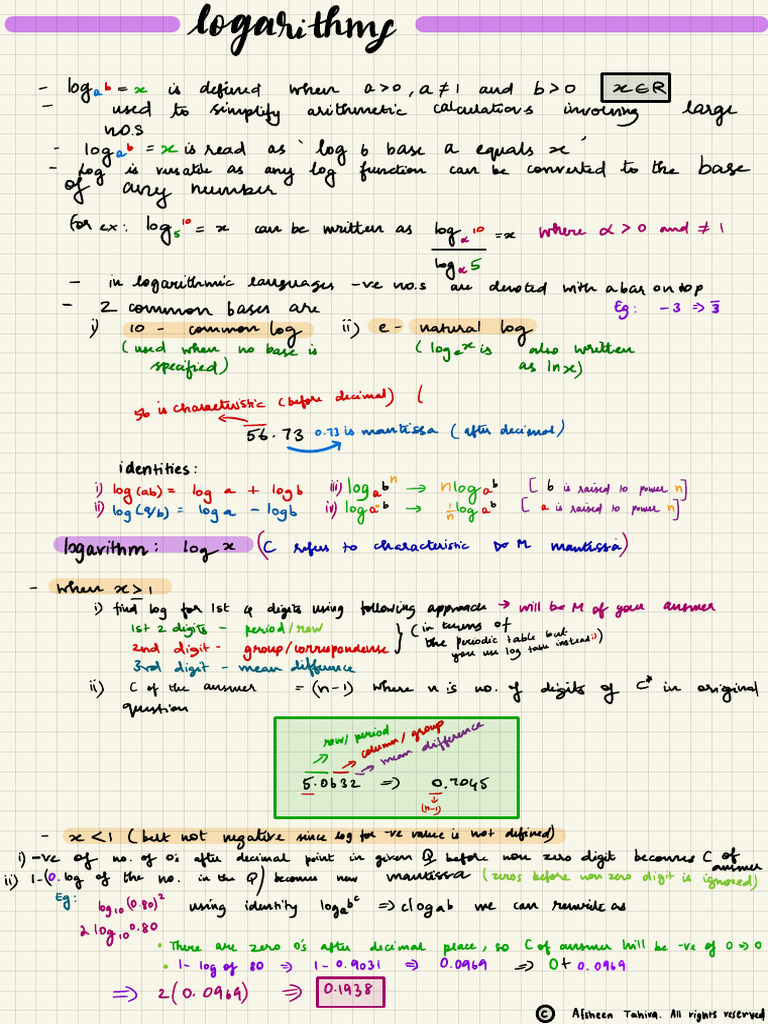 logarithms
- log a b = x is defined when a>0, a≠1 and b>0 x∈R
- used to simplify arithmetic calculations involving large
no.s
- log a b = x is read as ' log b base a equals x '
- Log is versatile as any log function can be converted to the base
of any number
For ex: log 5 10 = x can be written as log α 10 = x where α>0 and ≠ 1
log α 5
- in logarithmic languages -ve no.s are denoted with a bar on top
- 2 common bases are Eg: -3 => 3̄
i) 10 - common log ii) e - natural log
(used when no base is (log e x is also written
specified) as ln x)
56 is characteristic (before decimal) (
56.73 0.73 is mantissa (after decimal)
identities:
i) log(ab) = log a + log b iii) log a b^n → n log a b [ b is raised to power n]
ii) log(a/b) = log a - log b iv) log a b → 1/n log a b [ a is raised to power n]
logarithm: log x (C refers to characteristic M mantissa)
- when x ≥ 1
i) find log for 1st 4 digits using following approach → will be M of your answer
1st 2 digits - period/row
2nd digit - group/correspondense } (in terms of
the periodic table but
you use log table instead:)
3rd digit - mean difference
ii) C of the answer = (n-1) where n is no. of digits of C* in original
question
row/period
column/group
mean difference
5.0632 => 0.7045
(n-1)
- x < 1 (but not negative since log for -ve value is not defined)
i) -ve of no. of 0s after decimal point in given Q before non zero digit becomes C of
answer
ii) 1-(0.log of the no. in the Q) becomes new mantissa (zeros before non zero digit is ignored)
Eg: log10 (0.80)² using identity log a b^c => c log a b we can rewrite as
2 log10 0.80
• There are zero 0's after decimal place, so C of answer will be -ve of 0 => 0
• 1 - log of 80 => 1 - 0.9031 => 0.0969 => 0 + 0.0969
=> 2(0.0969) => 0.1938
© Afsheen Tahira. All rights reserved